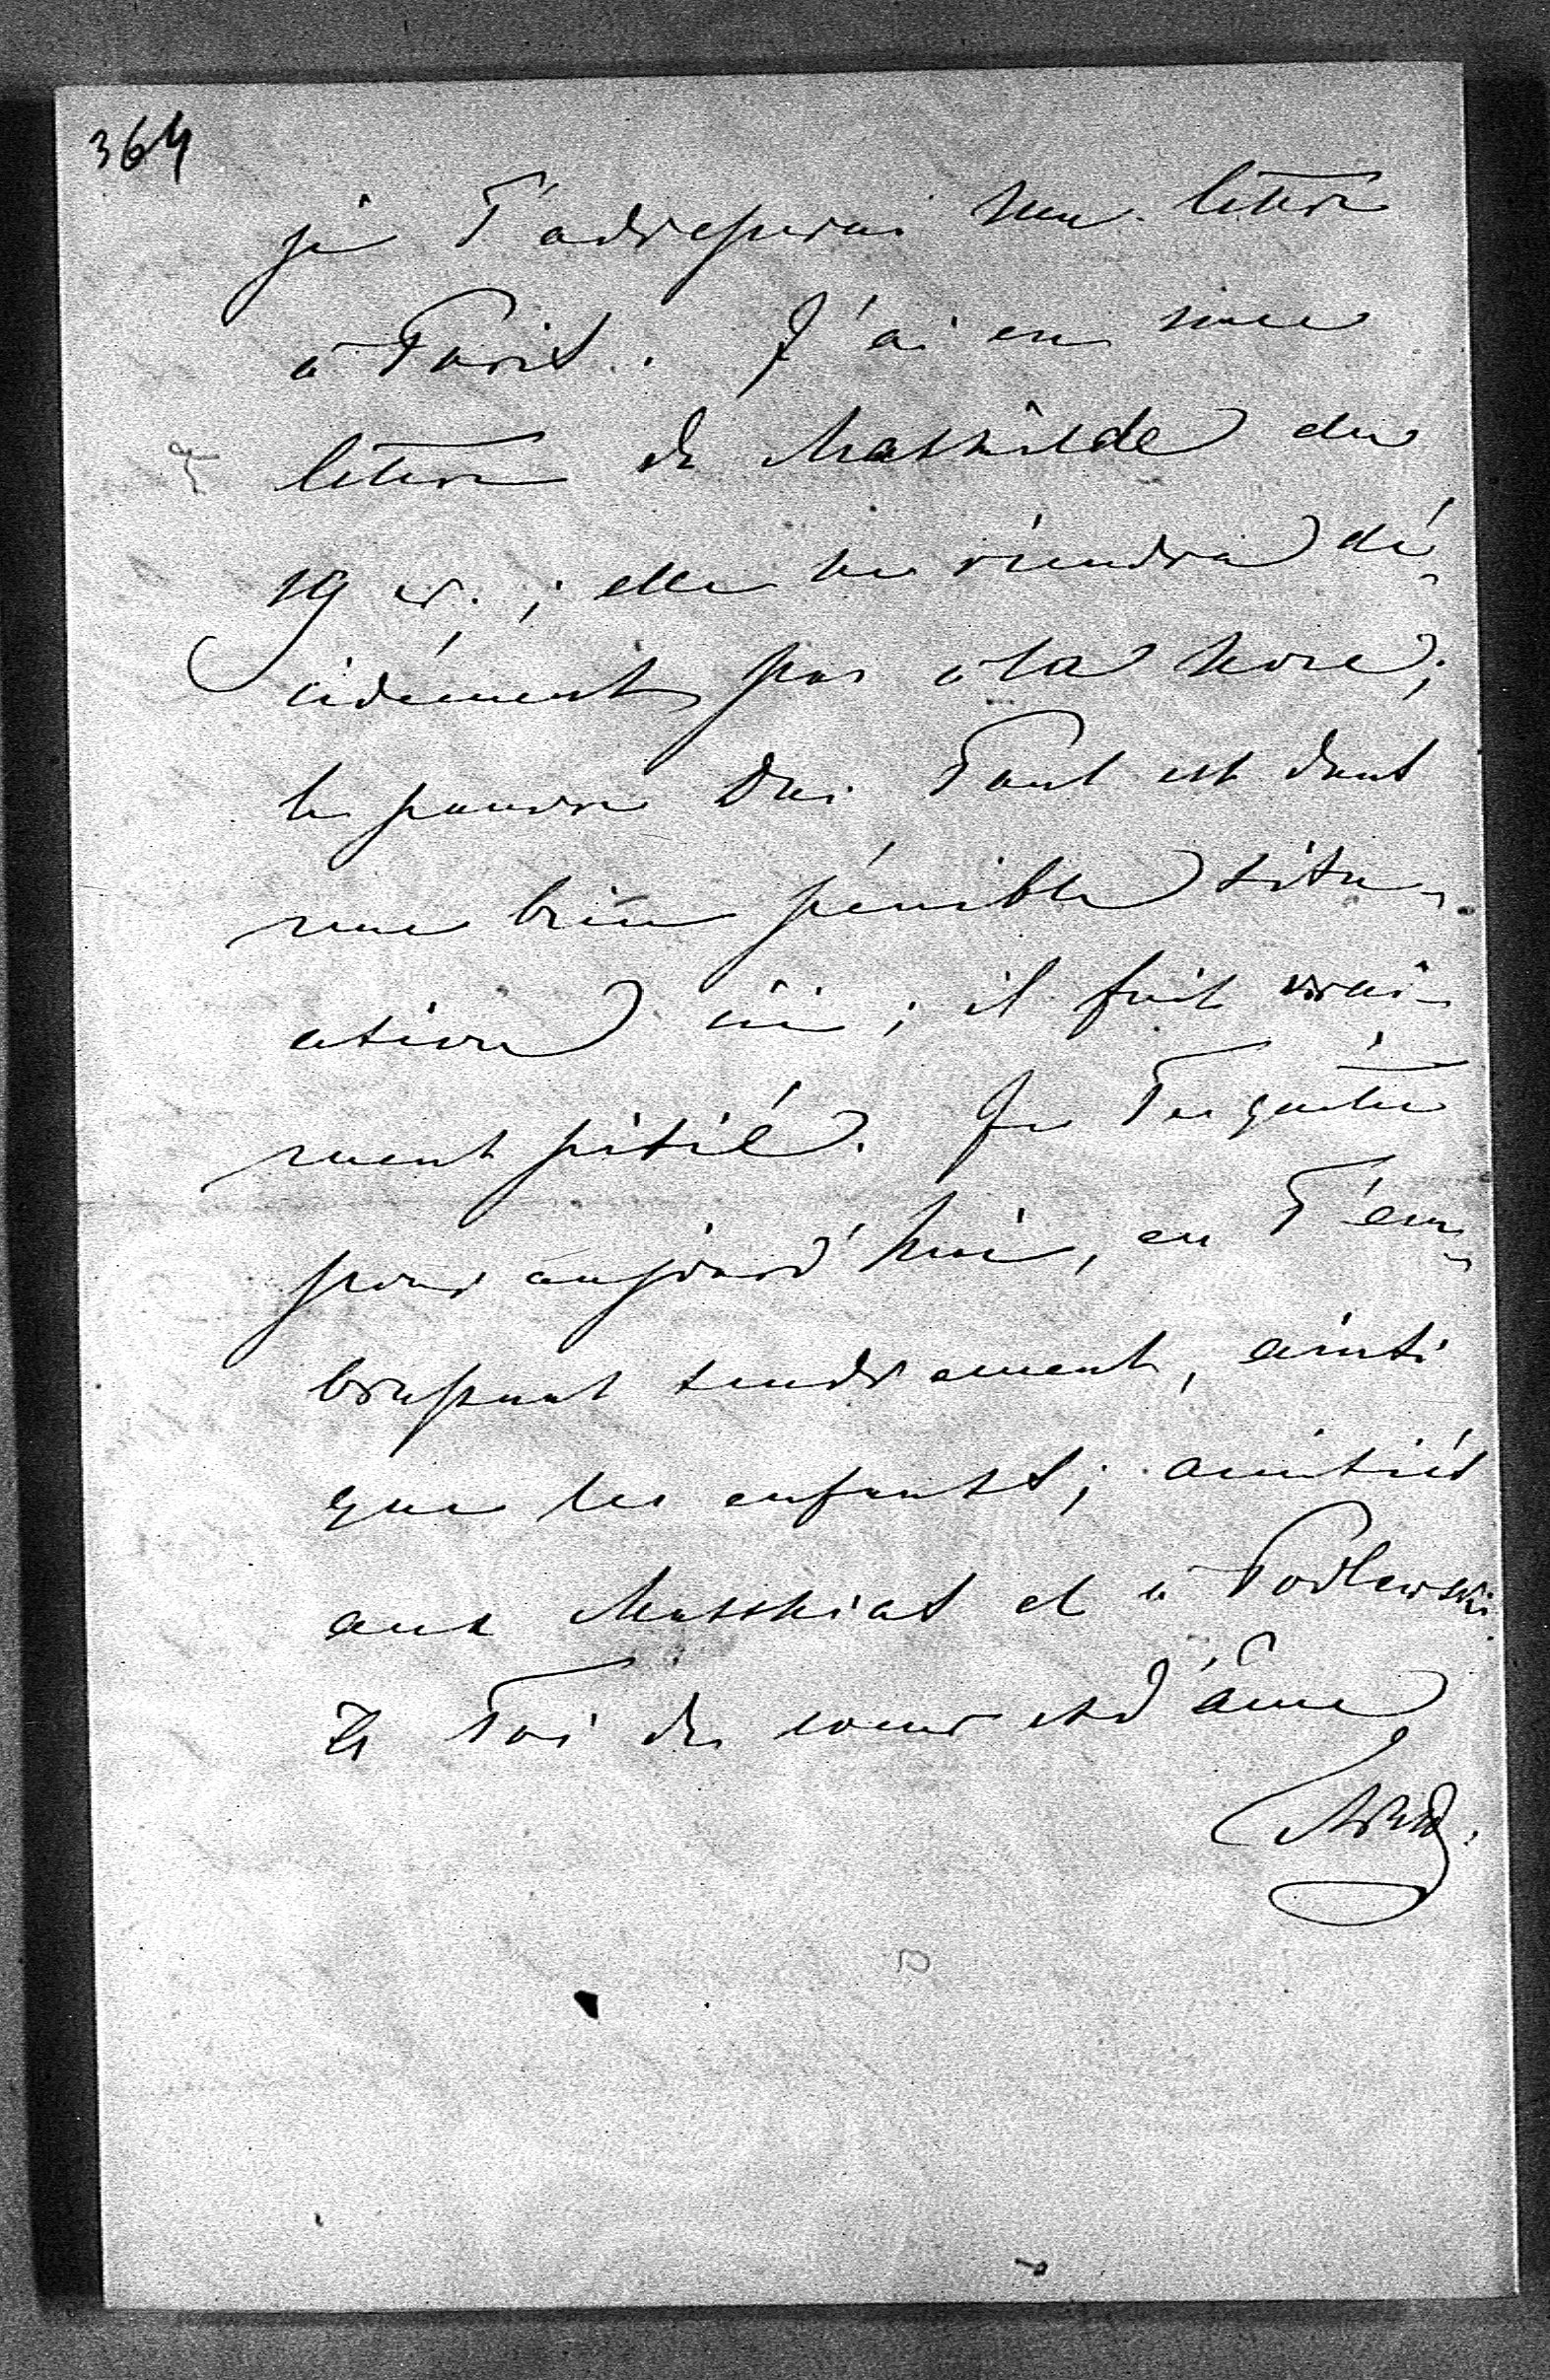 364
je T'adresserai ma lettre
à Paris. J'ai eu une
lettre de Mathilde du
19 cr.; elle ne viendra dé-
cidément pas à la noce;
le pauvre Dr. Paul est dans
une bien pénible situ-
ation ici; il fait vrai-
ment pitié. Je Te quitte
pour aujourd'hui, en T'em-
brassant tendrement, ainsi
que les enfants; amitiés
aux Mathias et à Podlewski.
à Toi de coeur et d'âme